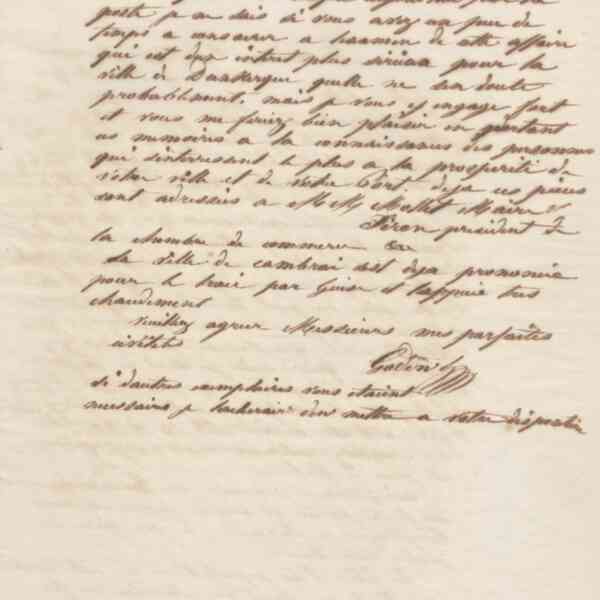 poste je ne sais si vous avez un peu de
temps a consacrer a lexamen de cette affaire
qui est d'un interet plus serieux pour la
ville de Dunkerque quelle ne sen doute
probablement, mais je vous y engage fort
et vous me feriez bien plaisir en portant
ces memoires a la connaissance des personnes
qui s'interressent le plus a la prosperité de
votre ville et de votre Port deja ces pieces
sont adressées a M M Mollet Maire &
Féron president de
la chambre de commerce
La ville de cambrai sest deja prononcée
pour le tracé par Guise et l'appuie tres
chaudement
veuillez agreer Messieurs mes parfaites
civilités
Godin
si d'autres exemplaires vous etaient
necessaires je tacherais d'en mettre a votre disposition